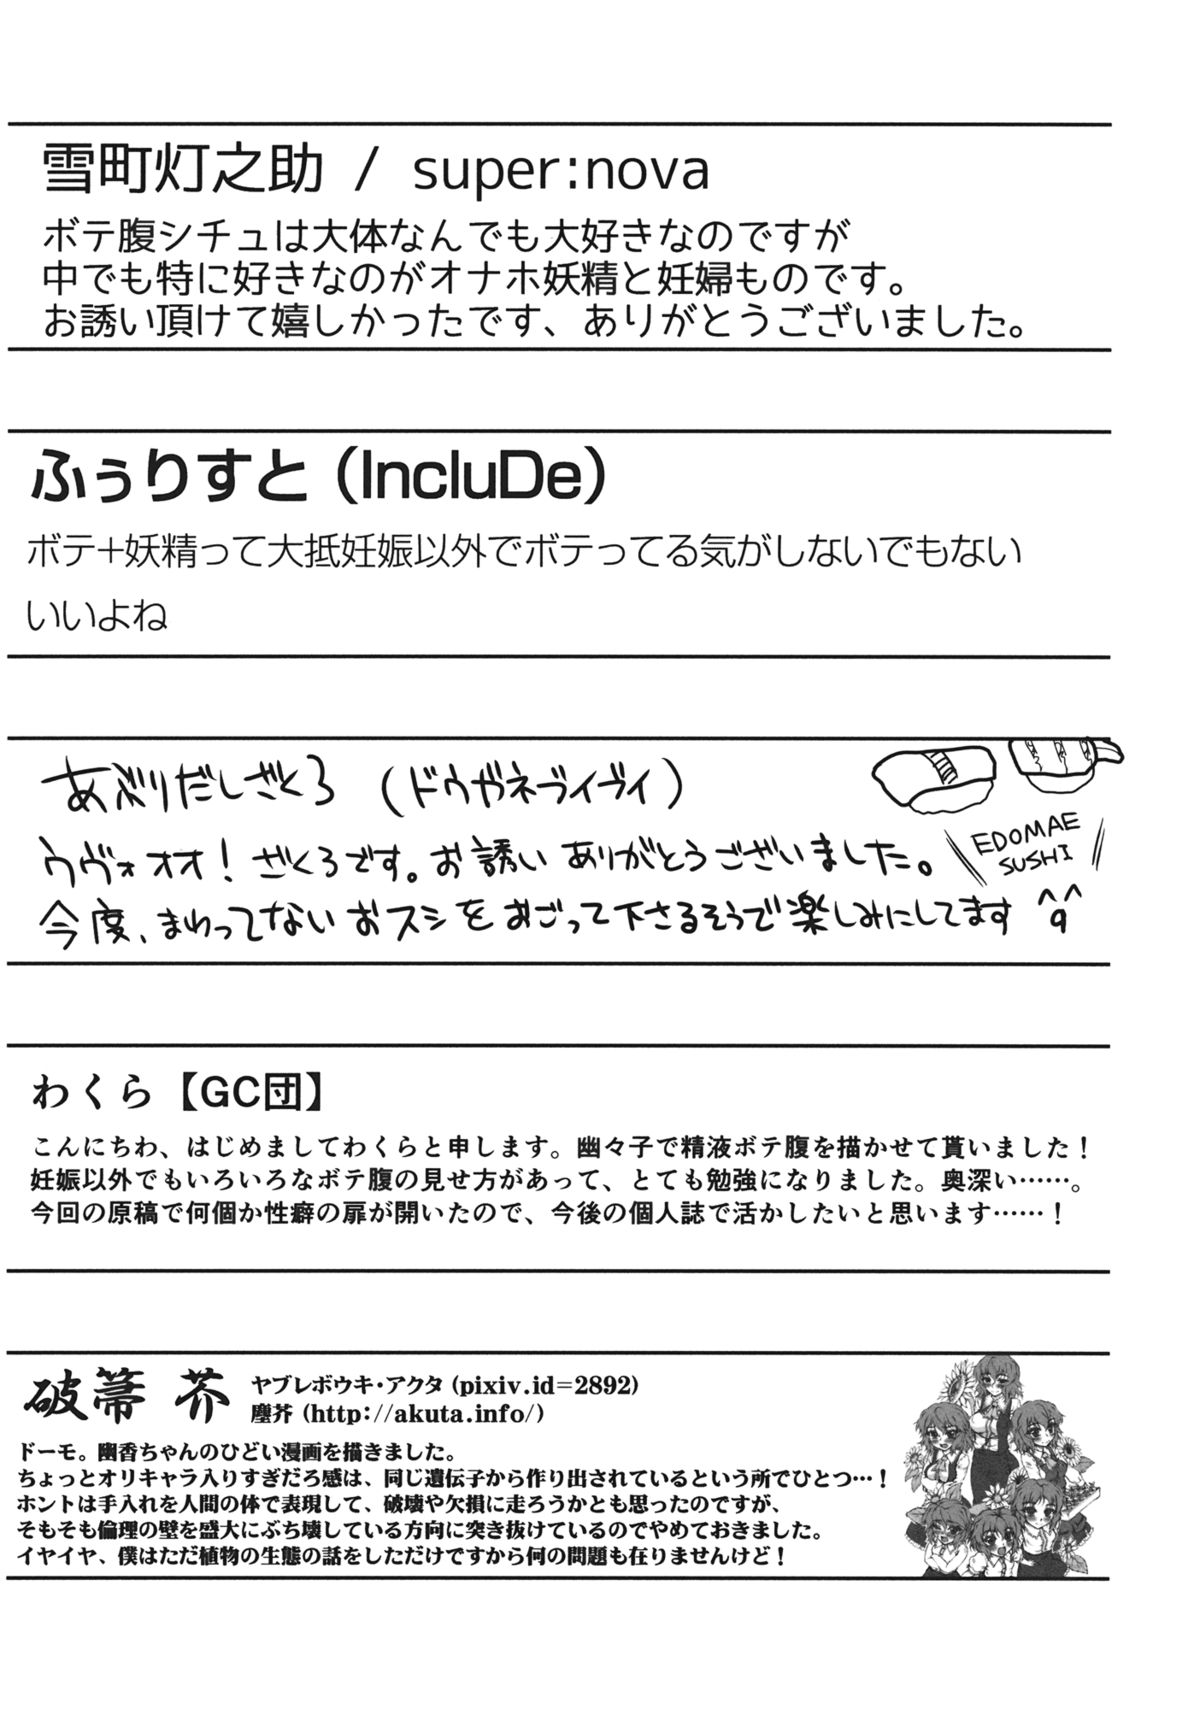 雪町灯之助 / super:nova
ボテ腹シチュは大体なんでも大好きなのですが
中でも特に好きなのがオナホ妖精と妊婦ものです。
お誘い頂けて嬉しかったです、ありがとうございました。
ふぅりすと（IncluDe）
ボテ+妖精って大抵妊娠以外でボテってる気がしないでもない
いいよね
あぶりだしざくろ（ドウガネブイブイ）
ウヴォオオ！ざくろです。お誘いありがとうございました。
EDOMAE
SUSHI
今度、まわってないおスシをおごって下さるそうで楽しみにしてます ^q^
わくら【GC団】
こんにちわ、はじめましてわくらと申します。幽々子で精液ボテ腹を描かせて貰いました！
妊娠以外でもいろいろなボテ腹の見せ方があって、とても勉強になりました。奥深い……。
今回の原稿で何個か性癖の扉が開いたので、今後の個人誌で活かしたいと思います……！
破箒 芥
ヤブレボウキ・アクタ (pixiv.id=2892)
塵芥 (http://akuta.info/)
ドーモ。幽香ちゃんのひどい漫画を描きました。
ちょっとオリキャラ入りすぎだろ感は、同じ遺伝子から作り出されているという所でひとつ…！
ホントは手入れを人間の体で表現して、破壊や欠損に走ろうかとも思ったのですが、
そもそも倫理の壁を盛大にぶち壊している方向に突き抜けているのでやめておきました。
イヤイヤ、僕はただ植物の生態の話をしただけですから何の問題も在りませんけど！